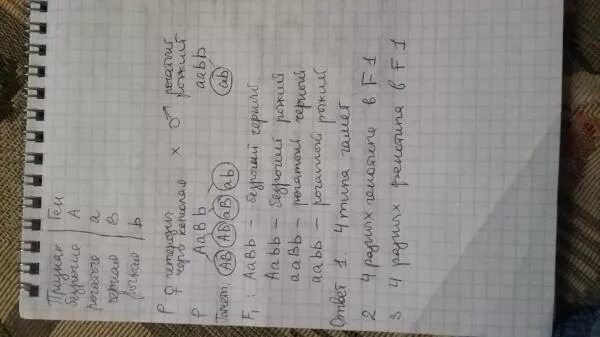 Признак | Ген
безрогие | A
рогатые | a
черная | B
рыжая | b
P ♀ гетерозиг. x ♂ рогатый
черн комолая рыжий
P AaBb aabb
Гаметы AB Ab aB ab ab
F1 : AaBb – безрогий черный
Aabb – безрогий рыжий
aaBb – рогатый черный
aabb – рогатый рыжий
Ответ 1. 4 типа гамет
2 4 разных генотипа в F1
3 4 разных фенотипа в F1